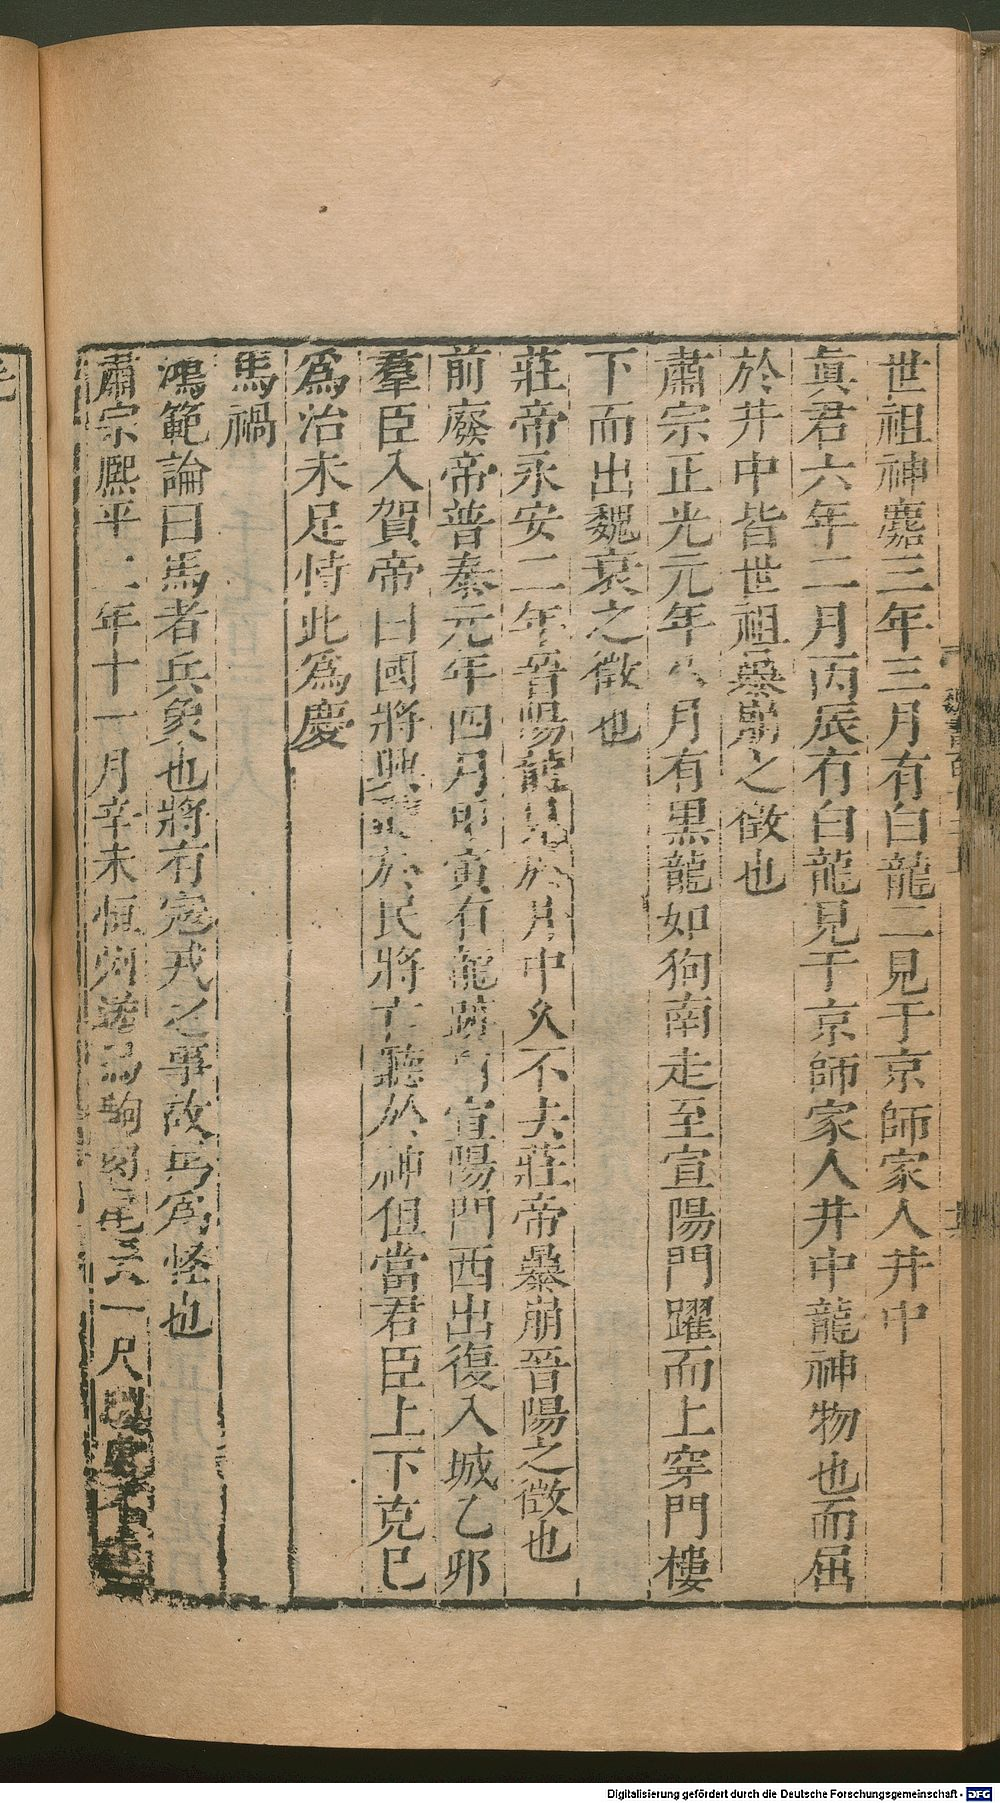 世祖神䴥三年三月有白龍二見于京師家人井中
眞君六年二月丙辰有白龍見于京師家人井中龍神物也而屈
於井中皆世祖暴崩之徵也
肅宗正光元年八月有黑龍如狗南走至宣陽門躍而上穿門樓
下而出魏衰之徵也
莊帝永安二年晉陽龍見於井中久不去莊帝暴崩晉陽之徵也
前廢帝普泰元年四月甲寅有龍跡自宣陽門西出復入城乙卯
羣臣入賀帝曰國將興聽於民將亡聽於神但當君臣上下克已
爲治未足恃此爲慶
馬禍
鴻範論曰馬者兵象也將有寇戎之事故馬爲怪也
肅宗熙平二年十一月辛未恒州送馬駒肉尾長一尺
Digitalisierung gefördert durch die Deutsche Forschungsgemeinschaft - DFG